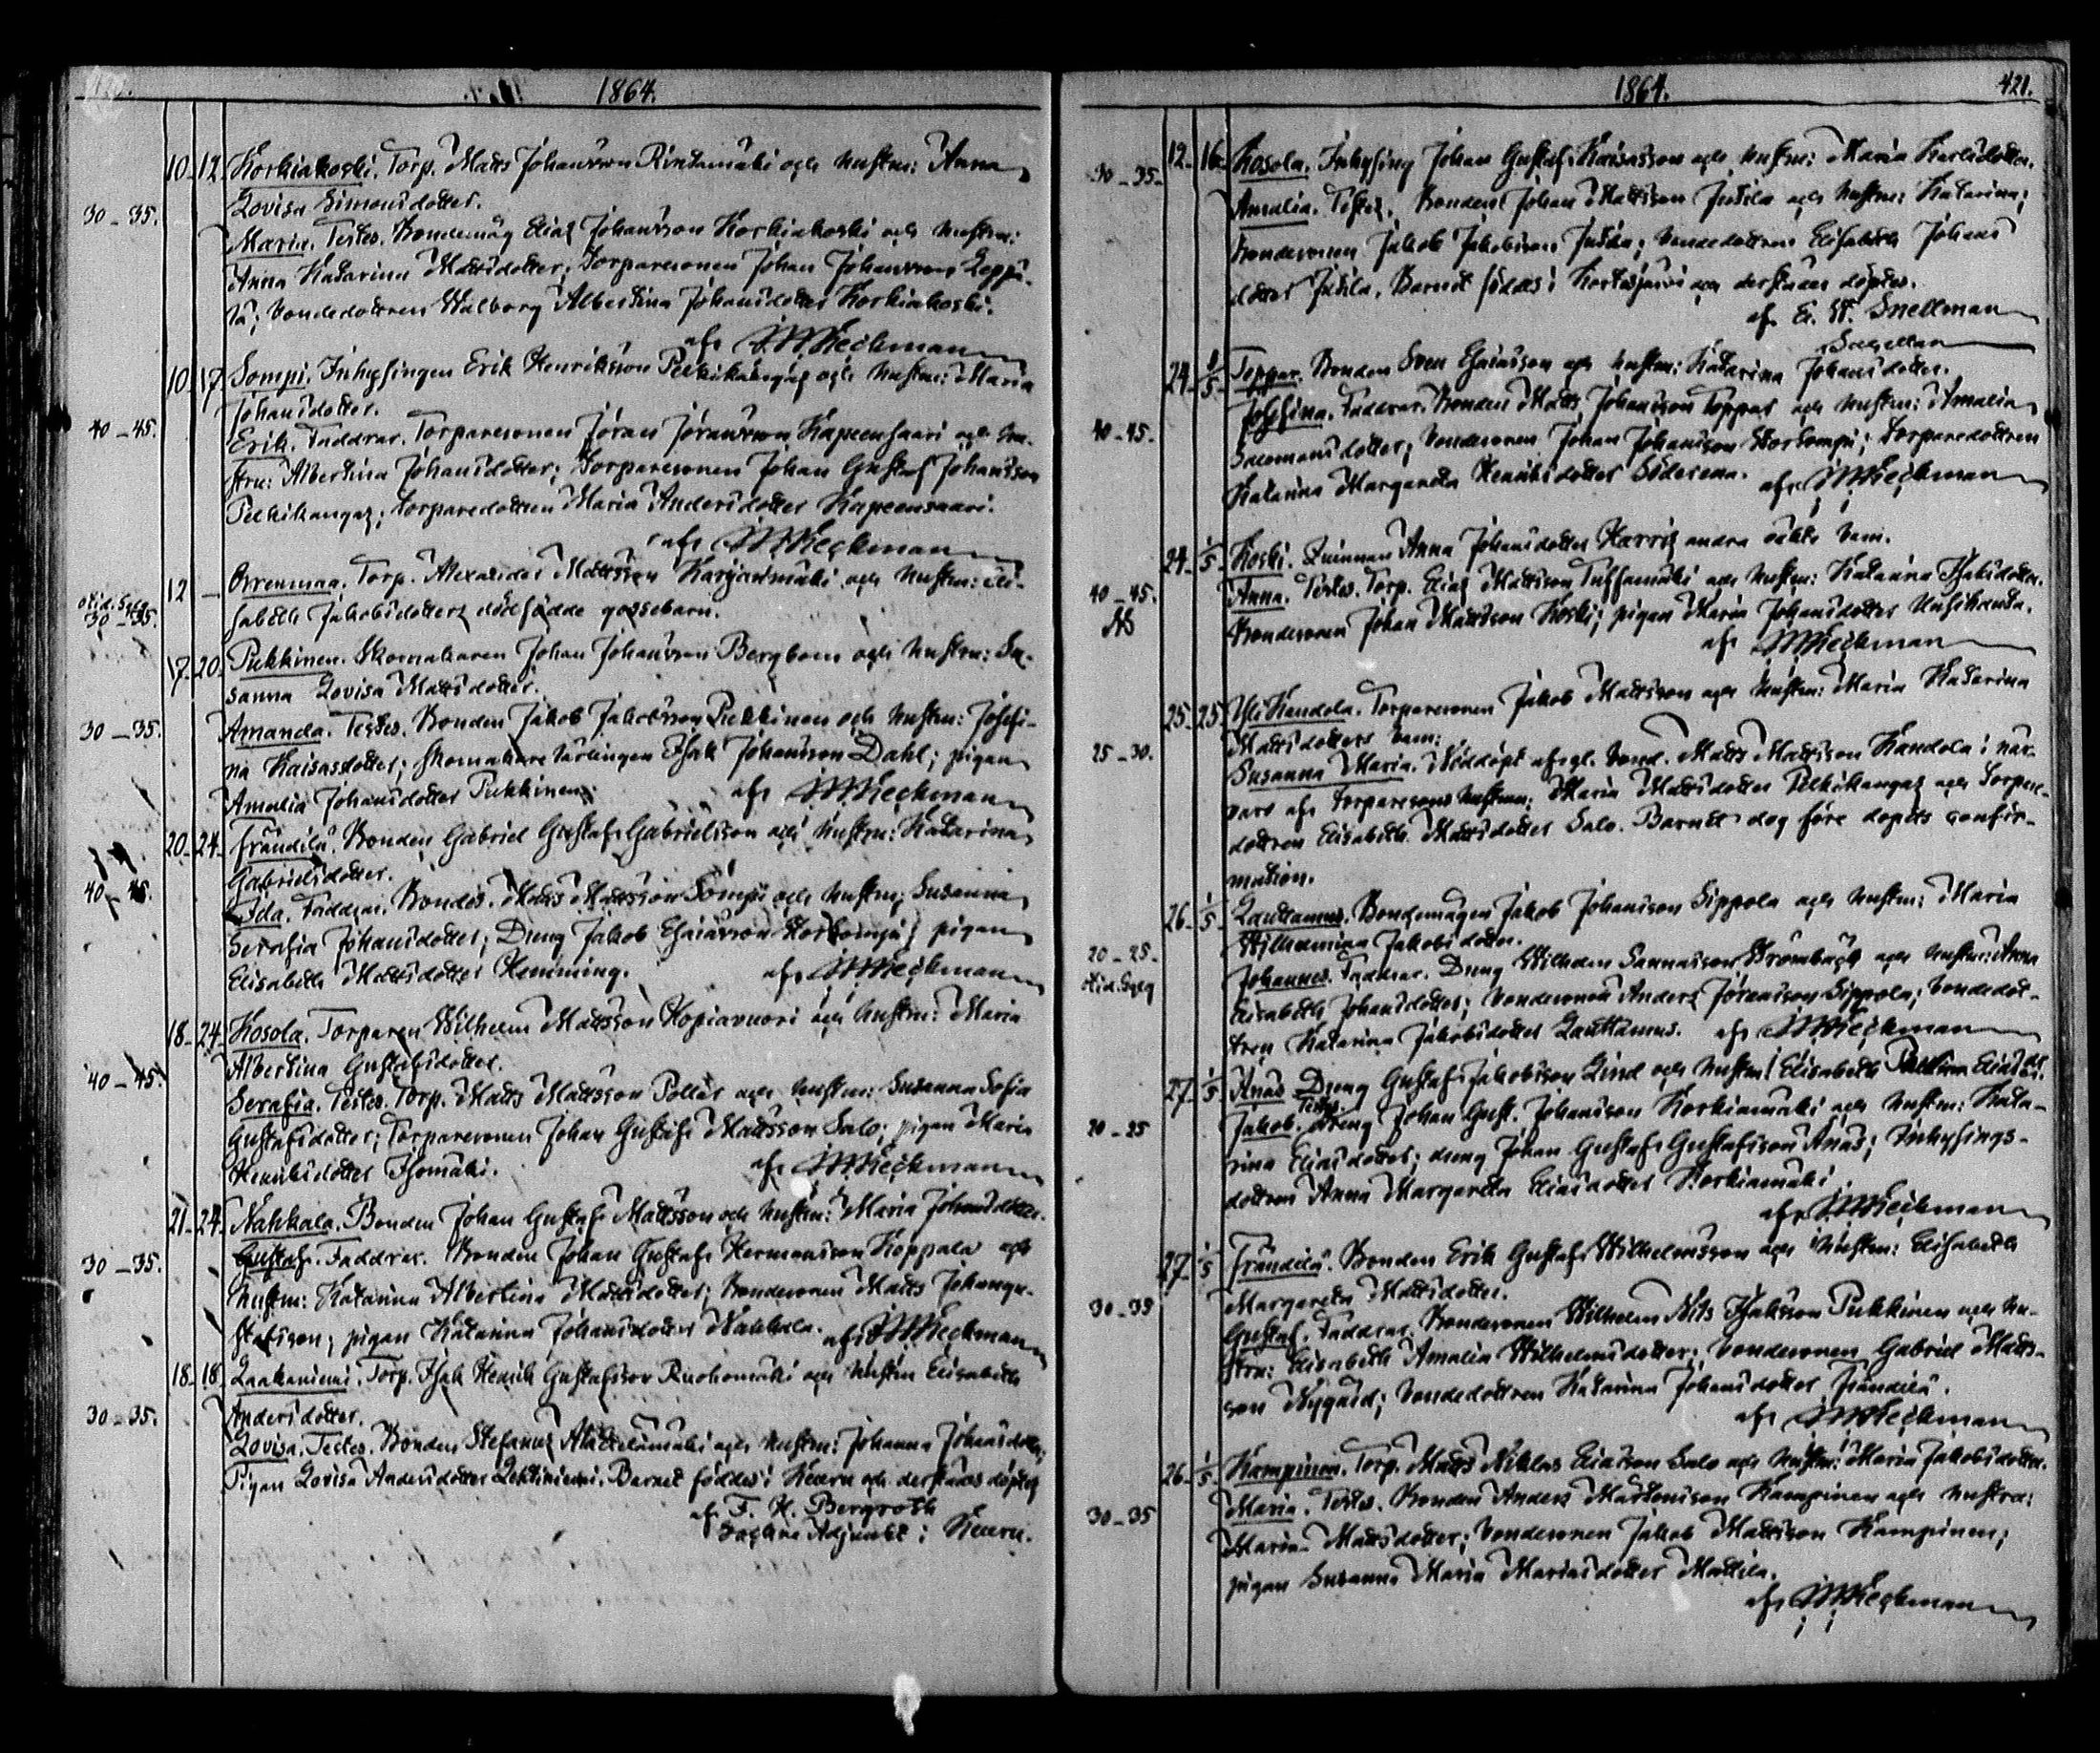 1864.
10. 12. Korkiakoski. Torp. Matts Johansson Rintamäki och hustru: Anna
Lovisa Simonsdotter.
30-35.
Maria. Testes. Bondemåg Elias Johansson Korkiakoski och hustru:
Anna Katarina Mattsdotter; Torparesonen Johan Johansson Leppä-
lä; bondedottren Walborg Albertina Johansdotter Korkiakoski.
afr
10. 17. Sompi. Inhysingen Erik Henriksson Pelkikangas och hustru: Maria
Johansdotter.
40-45.
Erik. Faddrar. Torparesonen Jöran Jöransson Kapeensaari och hu-
stru: Albertina Johansdotter; Torparesonen Johan Gustaf Johansson
Pelkikangas; torparedottren Maria Andersdotter Kapeensaari.
afr
12 - Orrenmaa. Torp. Alexander Mattsson Karjanmäki och hustru: Eli-
30-35.
sabeth Jakobsdotters dödfödde gossebarn.
17. 20. Pukkinen. Skomakaren Johan Johansson Bergbom och hustru: Su-
sanna Lovisa Mattsdotter.
30-35.
Amanda. Testes. Bonden Jakob Jakobsson Pukkinen och hustru: Josefi-
na Kaisasdotter; skomakare lärlingen Isak Johansson Dahl; pigan
Amalia Johansdotter Pukkinen. afr
20. 24. Frändilä. Bonden Gabriel Gustaf Gabrielsson och hustru: Katarina
Gabrielsdotter.
40-45.
Ida. Faddrar. Bondes. Matts Mattsson Sompi och hustru: Susanna
Serafia Johansdotter; Dreng Jakob Esaiasson Korsompi; pigan
Elisabeth Mattsdotter Hemming. afr
18. 24. Kosola. Torparen Wilhelm Mattsson Kopiavuori och hustru: Maria
Albertina Gustafsdotter.
40-45.
Serafia. Testes. Torp. Matts Mattsson Pollas och hustru: Susanna Sofia
Gustafsdotter; Torparesonen Johan Gustaf Mattsson Salo; pigan Maria
Henriksdotter Isomäki. afr
21. 24. Nahkala. Bonden Johan Gustaf Mattsson och hustru: Maria Johansdotter.
30-35.
Gustaf. Faddrar. Bonden Johan Gustaf Hermansson Koppala och
hustru: Katarina Albertina Mattsdotter; bondesonen Matts Johangu-
stafsson; pigan Katarina Johansdotter Nahkala. afr
18. 18. Laakaniemi. Torp. Isak Henrik Gustafsson Ruohomäki och hustru Elisabeth
30-35.
Andersdotter.
Lovisa. Testes. Bonden Stefanus Mattelämäki och hustru: Johanna Johansdotter;
Pigan Lovisa Andersdotter Lehtiniemi. Barnet föddes i Keuru och derstädes döptes
af F. H. Bergroth
Adjunkt i Keuru.
1864. 421.
12. 16. Kosola. Inhysing Johan Gustaf Kaisasson och hustru: Maria Karlsdotter.
30-35.
Amalia. Testes. Bonden Johan Mattsson Jusila och hustru: Katarina;
bondesonen Jakob Jakobsson Jusila; bondedottren Elisabeth Johans
dotter Jusila. Barnet föddes i Kortesjärvi och derstädes döptes.
af E. W. Snellman
24. 1/5 Toppar. Bonden Sven Esaiasson och hustru: Katarina Johansdotter.
40-45.
Josefina. Faddrar. Bonden Matts Johansson Toppar och hustru: Amalia
Salomonsdotter; bondesonen Johan Johansson Korsompi; torparedottren
Katarina Margareta Henriksdotter Söderena. afr
24. 1/5 Koski. Qvinnan Anna Johansdotter Harris andra oäkta barn.
40-45.
Anna. Testes. Torp. Elias Mattsson Tuffamäki och hustru: Katarina Isaksdotter.
Bondesonen Johan Mattsson Koski; pigan Maria Johansdotter Uusihanka.
afr
25. 25. Yli Kandola. Torparesonen Jakob Mattsson och hustru: Maria Katarina
25-30.
Mattsdotters barn:
Susanna Maria. Nöddöpt af gl. bond. Matts Mattsson Kandola i när-
varo af torparesons hustrun: Maria Mattsdotter Pelkikangas och Torpare-
dottren Elisabeth Mattsdotter Salo. Barnet dog före dopets confir-
mation.
26. 1/5 Lauttamus. Bondemågen Jakob Johansson Sippola och hustru: Maria
Wilhelmina Jakobsdotter.
20-25.
Johannes. Faddrar. Dreng Wilhelm Sannasson Strömbäck och hustru: Anna
Elisabeth Johansdotter; bondesonen Anders Jöransson Sippola; bondedot-
tren Katarina Jakobsdotter Lauttamus. afr
27. 1/5 Anas Dreng Gustaf Jakobsson Lind och hustru: Elisabeth Elias dr.
20-25
Testes.
Jakob. Dreng Johan Gust. Johansson Korkiamäki och hustru: Kata-
rina Eliasdotter; dreng Johan Gustaf Gustafsson Anas; Inhysings-
dottren Anna Margareta Eliasdotter Korkiamäki.
afr
27. 1/5 Frändilä. Bonden Erik Gustaf Wilhelmsson och hustru: Elisabeth
30-35
Margareta Mattsdotter.
Gustaf. Faddrar. Bondesonen Wilhelm Nils Isaksson Pukkinen och hu-
stru: Elisabeth Amalia Wilhelmsdotter; bondesonen Gabriel Matts-
son Nygård; bondedottren Katarina Johansdotter Frändilä.
afr
26. 1/5 Kampinen. Torp. Matts Niklas Eliasson Salo och hustru: Maria Jakobsdotter.
30-35
Maria. Testes. Bonden Anders Mårtensson Kampinen och hustru:
Maria Mattsdotter; bondesonen Jakob Mattsson Kampinen;
pigan Susanna Maria Mariasdotter Mattila.
afr